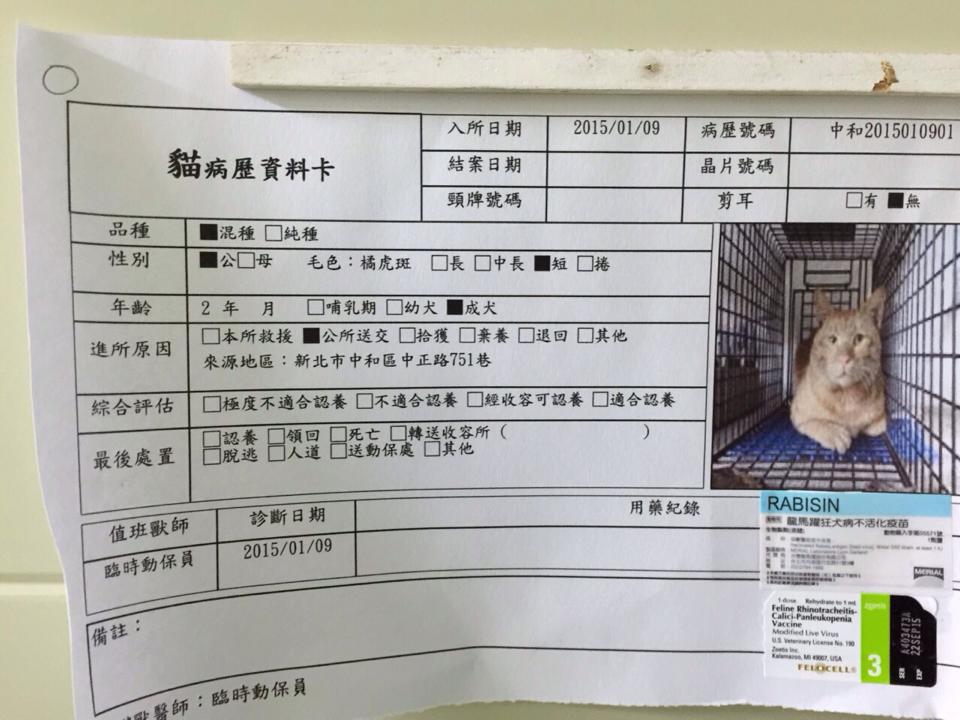 貓病歷資料卡
入所日期 2015/01/09 病歷號碼 中和2015010901
結案日期 晶片號碼
頸牌號碼 剪耳 □有 ■無
品種 ■混種 □純種
性別 ■公□母 毛色：橘虎斑 □長 □中長 ■短 □捲
年齡 2 年 月 □哺乳期 □幼犬 ■成犬
進所原因 □本所救援 ■公所送交 □拾獲 □棄養 □退回 □其他
來源地區：新北市中和區中正路751巷
綜合評估 □極度不適合認養 □不適合認養 □經收容可認養 □適合認養
最後處置 □認養 □領回 □死亡 □轉送收容所（ ）
□脫逃 □人道 □送動保處 □其他
值班獸師 診斷日期 用藥紀錄
臨時動保員 2015/01/09
RABISIN
龍馬躍狂犬病不活化疫苗
MERIAL
1 dose Rehydrate to 1 mL
Feline Rhinotracheitis-
Calici-Panleukopenia
Vaccine
Modified Live Virus
U.S. Veterinary License No. 190
Zoetis Inc.
Kalamazoo, MI 49007, USA
FELOCELL
zoetis
3
SER A403473A
EXP 22SEP15
備註：
獸醫師：臨時動保員